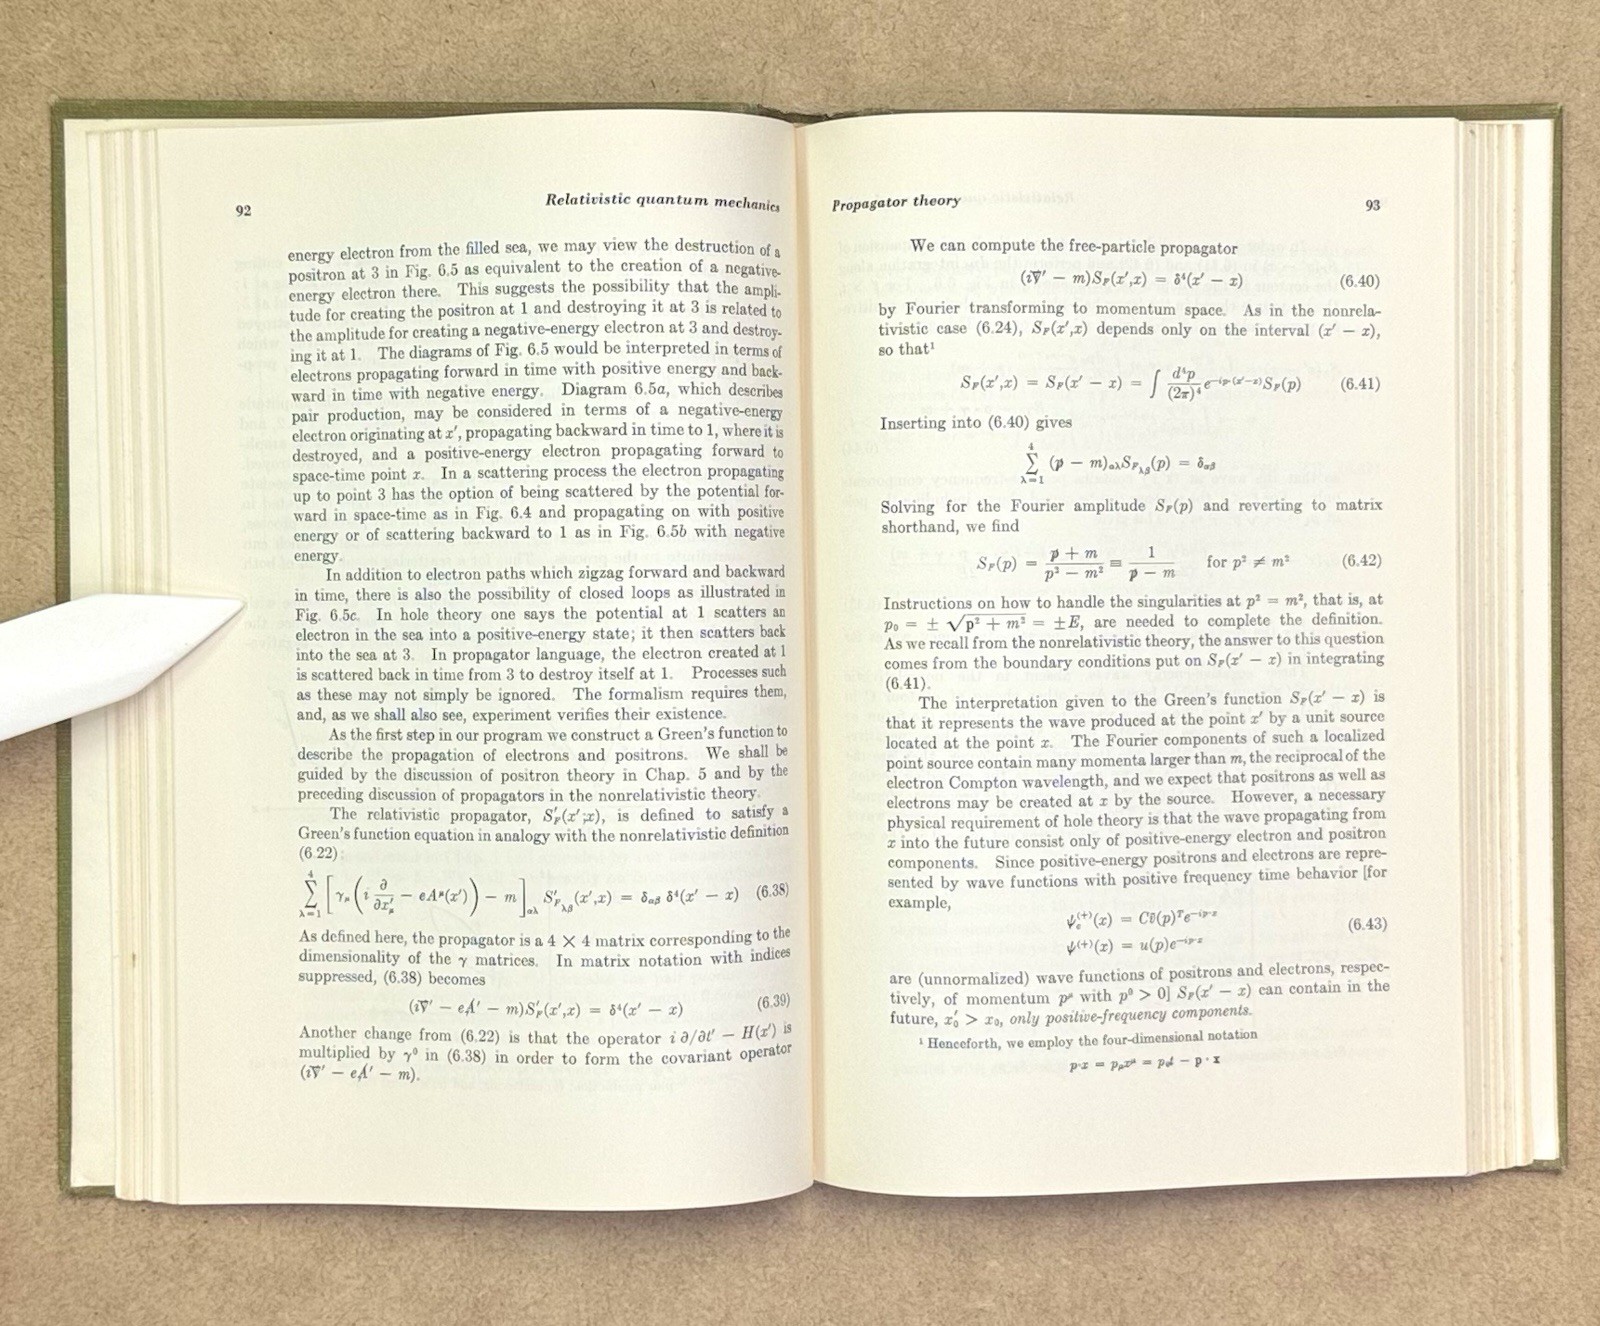 92
Relativistic quantum mechanics
energy electron from the filled sea, we may view the destruction of a
positron at 3 in Fig. 6.5 as equivalent to the creation of a negative-
energy electron there. This suggests the possibility that the ampli-
tude for creating the positron at 1 and destroying it at 3 is related to
the amplitude for creating a negative-energy electron at 3 and destroy-
ing it at 1. The diagrams of Fig. 6.5 would be interpreted in terms of
electrons propagating forward in time with positive energy and back-
ward in time with negative energy. Diagram 6.5a, which describes
pair production, may be considered in terms of a negative-energy
electron originating at x′, propagating backward in time to 1, where it is
destroyed, and a positive-energy electron propagating forward to
space-time point x. In a scattering process the electron propagating
up to point 3 has the option of being scattered by the potential for-
ward in space-time as in Fig. 6.4 and propagating on with positive
energy or of scattering backward to 1 as in Fig. 6.5b with negative
energy.
In addition to electron paths which zigzag forward and backward
in time, there is also the possibility of closed loops as illustrated in
Fig. 6.5c. In hole theory one says the potential at 1 scatters an
electron in the sea into a positive-energy state; it then scatters back
into the sea at 3. In propagator language, the electron created at 1
is scattered back in time from 3 to destroy itself at 1. Processes such
as these may not simply be ignored. The formalism requires them,
and, as we shall also see, experiment verifies their existence.
As the first step in our program we construct a Green's function to
describe the propagation of electrons and positrons. We shall be
guided by the discussion of positron theory in Chap. 5 and by the
preceding discussion of propagators in the nonrelativistic theory.
The relativistic propagator, S′_F(x′,x), is defined to satisfy a
Green's function equation in analogy with the nonrelativistic definition
(6.22):
∑_{λ=1}^{4} [γ_μ (i ∂/∂x′_μ − eA^μ(x′)) − m]_{αλ} S′_{F λβ}(x′,x) = δ_{αβ} δ⁴(x′ − x) (6.38)
As defined here, the propagator is a 4 × 4 matrix corresponding to the
dimensionality of the γ matrices. In matrix notation with indices
suppressed, (6.38) becomes
(i∇̸′ − eA̸′ − m)S′_F(x′,x) = δ⁴(x′ − x) (6.39)
Another change from (6.22) is that the operator i ∂/∂t′ − H(x′) is
multiplied by γ⁰ in (6.38) in order to form the covariant operator
(i∇̸′ − eA̸′ − m).
Propagator theory
93
We can compute the free-particle propagator
(i∇̸′ − m)S_F(x′,x) = δ⁴(x′ − x) (6.40)
by Fourier transforming to momentum space. As in the nonrela-
tivistic case (6.24), S_F(x′,x) depends only on the interval (x′ − x),
so that¹
S_F(x′,x) = S_F(x′ − x) = ∫ d⁴p/(2π)⁴ e^{−ip·(x′−x)} S_F(p) (6.41)
Inserting into (6.40) gives
∑_{λ=1}^{4} (p̸ − m)_{αλ} S_{F λβ}(p) = δ_{αβ}
Solving for the Fourier amplitude S_F(p) and reverting to matrix
shorthand, we find
S_F(p) = (p̸ + m)/(p² − m²) ≡ 1/(p̸ − m) for p² ≠ m² (6.42)
Instructions on how to handle the singularities at p² = m², that is, at
p₀ = ± √(p² + m²) = ±E, are needed to complete the definition.
As we recall from the nonrelativistic theory, the answer to this question
comes from the boundary conditions put on S_F(x′ − x) in integrating
(6.41).
The interpretation given to the Green's function S_F(x′ − x) is
that it represents the wave produced at the point x′ by a unit source
located at the point x. The Fourier components of such a localized
point source contain many momenta larger than m, the reciprocal of the
electron Compton wavelength, and we expect that positrons as well as
electrons may be created at x by the source. However, a necessary
physical requirement of hole theory is that the wave propagating from
x into the future consist only of positive-energy electron and positron
components. Since positive-energy positrons and electrons are repre-
sented by wave functions with positive frequency time behavior [for
example,
ψ_c^{(+)}(x) = Cv̄(p)^T e^{−ip·x}
(6.43)
ψ^{(+)}(x) = u(p)e^{−ip·x}
are (unnormalized) wave functions of positrons and electrons, respec-
tively, of momentum p^μ with p⁰ > 0] S_F(x′ − x) can contain in the
future, x′₀ > x₀, only positive-frequency components.
¹ Henceforth, we employ the four-dimensional notation
p·x = p_μx^μ = p₀t − p · x